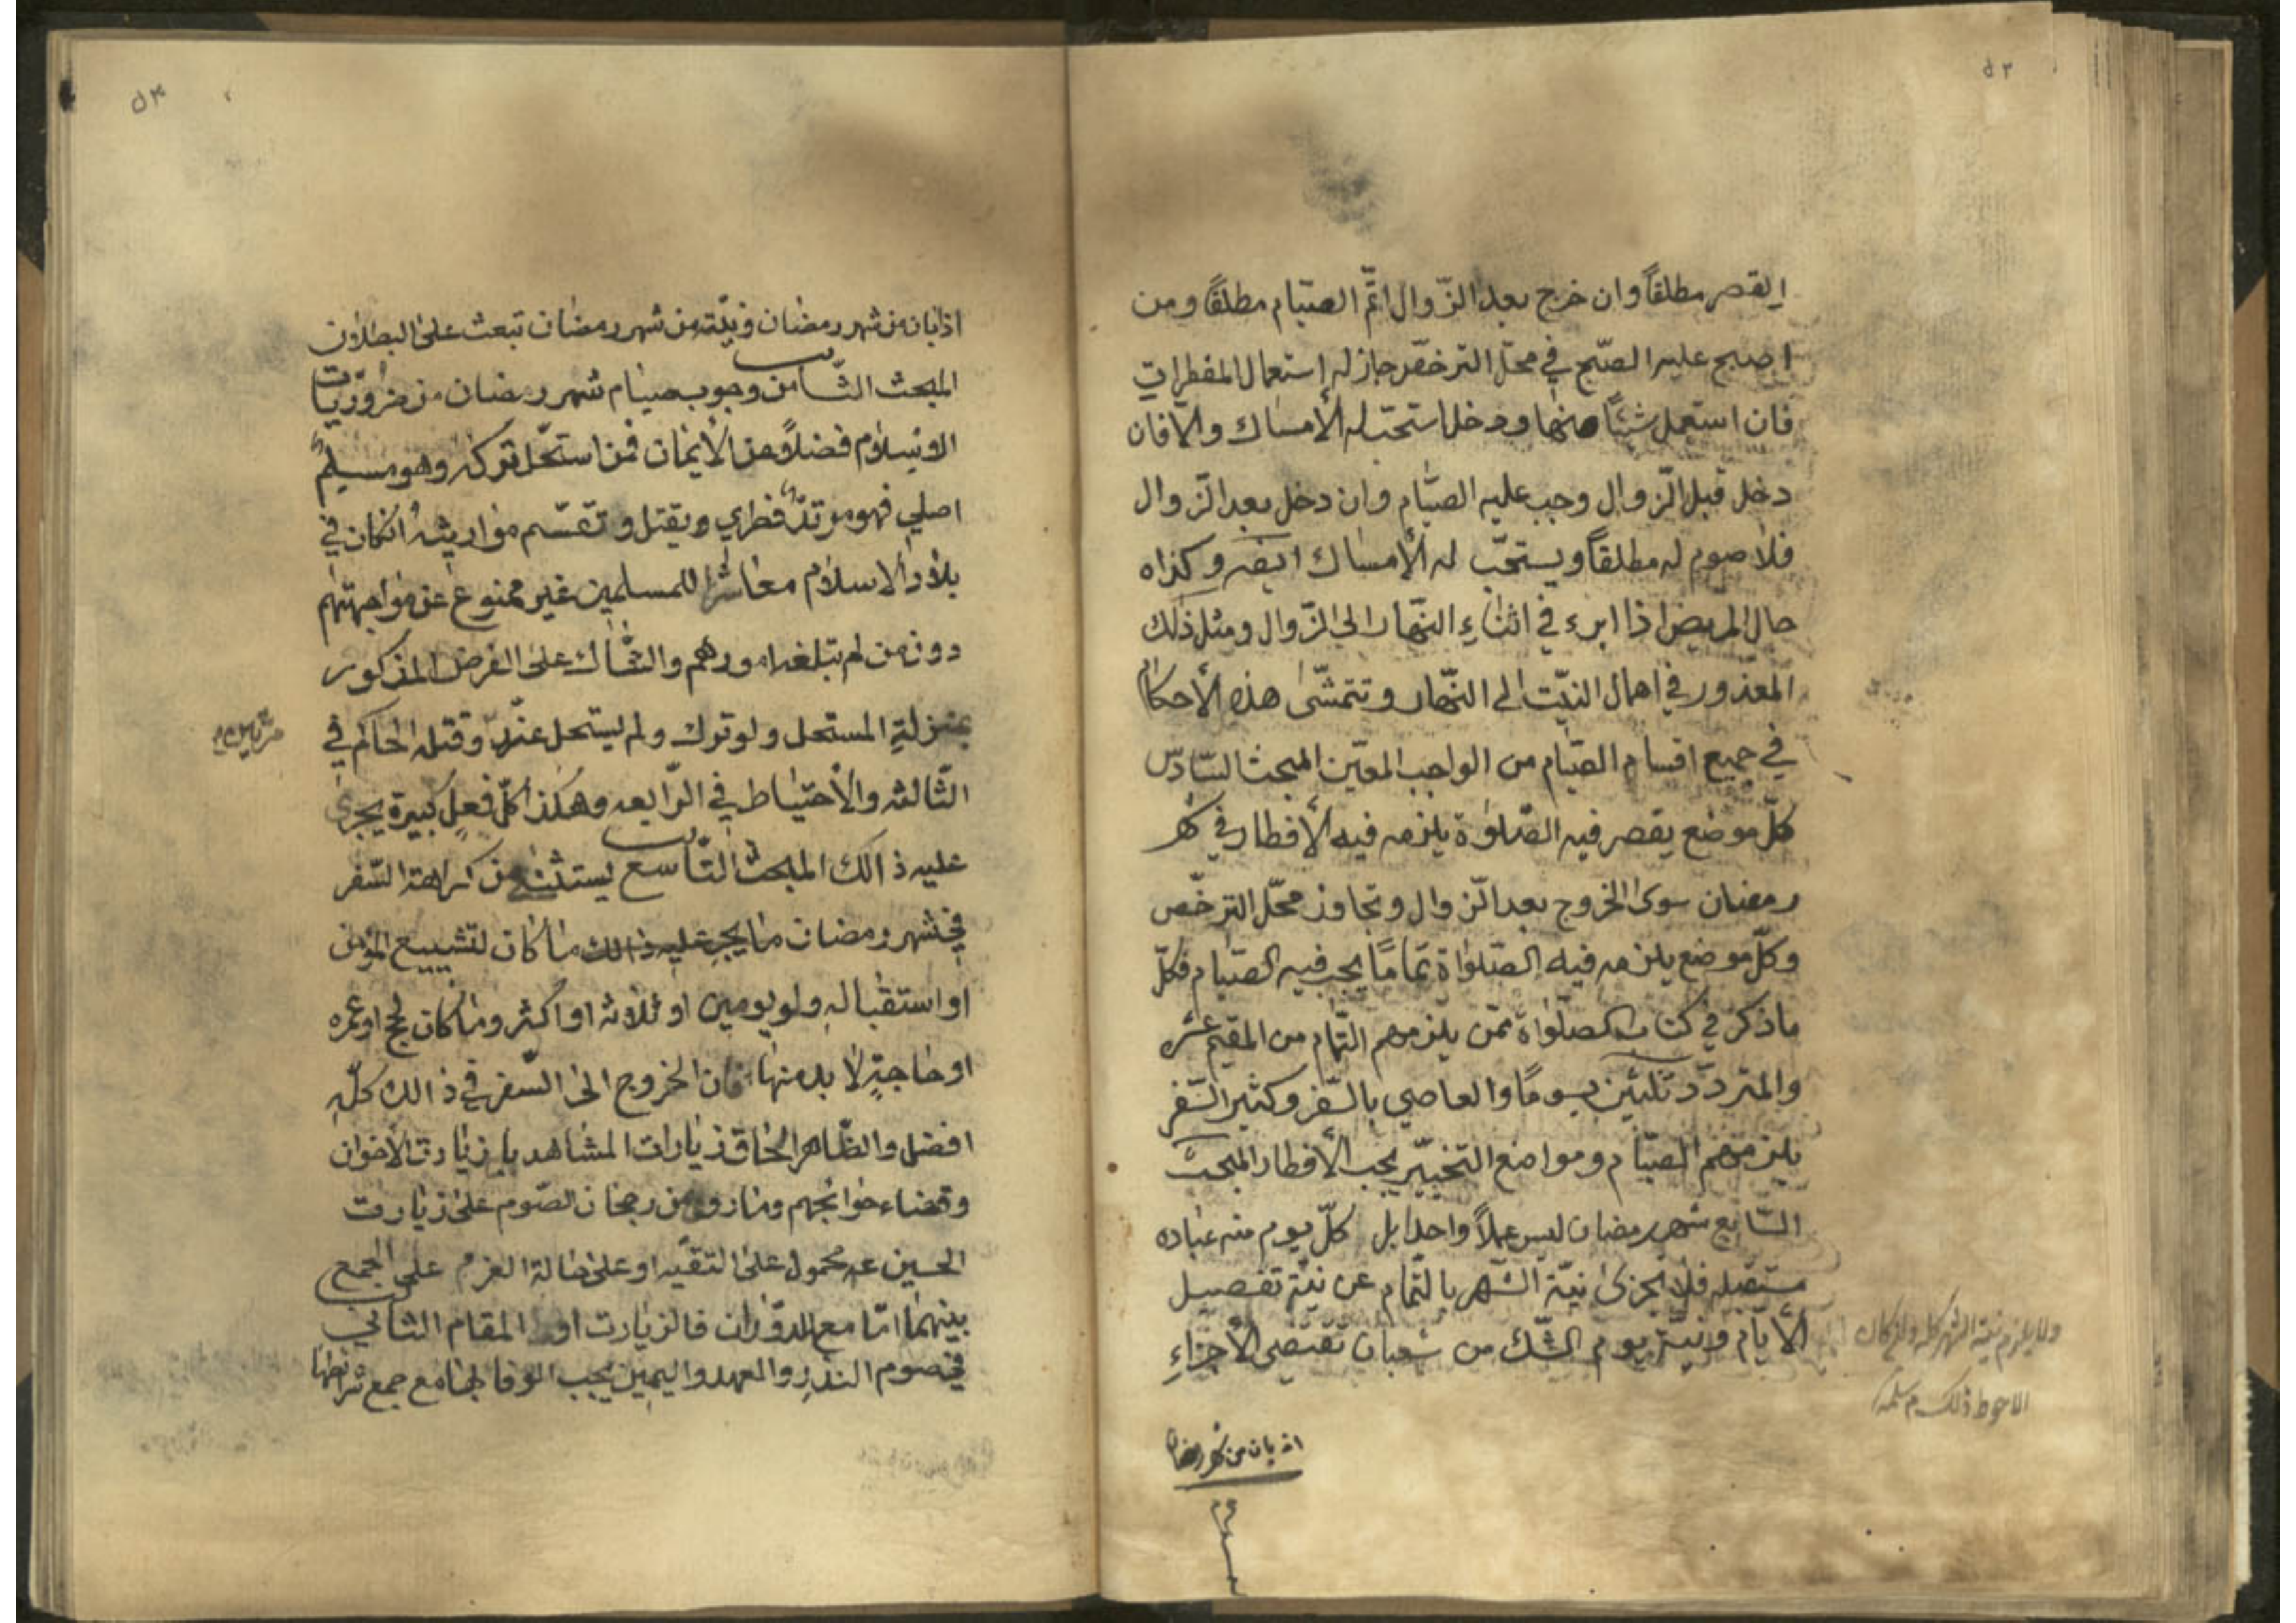 ٥٣
القصر مطلقاً وان خرج بعد الزّوال اتمّ الصّيام مطلقاً ومن
اصبح عليه الصّبح في محلّ الترخّص جاز له استعمال المفطرات
فان استعمل شيئاً منها ودخل استحبّ له الأمساك والّا فان
دخل قبل الزّوال وجب عليه الصّيام وان دخل بعد الزّوال
فلا صوم له مطلقاً ويستحّب له الأمساك ايضه وكذاه
حال المريض اذا ابرء في اثناءِ النّهار الى الزّوال ومثل ذلك
المعذور في اهمال النيّت الى النّهار وتتمشّى هذه الأحكام
في جميع اقسام الصّيام من الواجب المعيّن المبحث السّادس
كلّ موضع يقصر فيه الصّلوٰة يلزمه فيه الأفطار في شهر
رمضان سوى الخروج بعد الّزوال وتجاوز محّل الترخّص
وكلّ موضع يلزمه فيه الصّلوٰاة تمامًا يجب فيه الصّيام فكلّ
ماذكر في كتاب الصلّوٰاة ممّن يلزمهم التّمام من المقيم عشره
والمتردّد ثلثين يومًا والعاصي بالسّفر وكثير السّفر
يلزمهم الصيّام ومواضع التخييّر يجب الأفطار المبحث
السّابع شهر رمضان ليس عملاً واحدا بل كلّ يوم منه عباده
مستقبله فلا يجزى نيّة الشّهر بالتّمام عن نيّة تفصيل
الأيّام ونيّة يوم الشّك من شعبان تقتضى الأجزاءِ
ولا يلزم نية الشهر كله وان كان
الاحوط ذلك م سلمه
اذ بان من شهر رمضان
٥٤
اذا بان من شهر رمضان ونيّته من شهر رمضان تبعث على البطلان
المبحث الثّامن وجوب صيام شهر رمضان من ضروّريات
الاسلام فضلاً عن الأيمان فمن استحّل تركه وهو مسلم
اصلي فهو مرتدّ فطري ويقتل وتقسّم مواريثه انكان في
بلاد الاسلام معاشرا للمسلمين غير ممنوع عن مواجهتهم
دون من لم تبلغه امورهم والشّاك على الفرض المذكور
بمنزلةِ المستحل ولو ترك ولم يستحل عزّر وقتله الحاكم في
الثّالثه والأحتياط في الرّابعه وهكذا كلّ فعل كبيرة يجرى
عليه ذالك المبحث التّاسع يستثنى من كراهة السّفر
في شهر رمضان ما يجرى عليه ذالك ما كان لتشييع المؤمن
او استقباله ولو يومين او ثلاثه او اكثر وما كان لحج او عمره
او حاجةٍ لا بد منها فان الخروج الى السّفر في ذالك كلّه
افضل والظّاهر الحاق زيارات المشاهد بل زيارت الاخوان
وقضاء حوائجهم وما روي من رجحان الصّوم على زيارت
الحسين عه محمول على التقيّه او على حالة العزم على الجمع
بينهما امّا مع الدوّران فالزيارت اولى المقام الثاني
في صوم النذرِ والعهد واليمين يجب الوفا لها مع جمع شرائطها